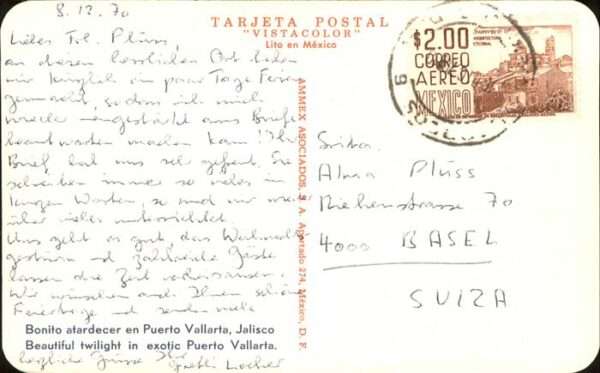 8.12.70
TARJETA POSTAL
"VISTACOLOR"
Lito en México
Liebes Frl. Plüss,
an diesem herrlichen Ort haben
wir kürzlich ein paar Tage Ferien
gemacht, sodass ich mich
wieder
beantworten kann! Ihr
Brief hat uns sehr gefreut. Sie
schreiben immer so vieles in
kurzen Worten, so sind wir wieder
über vieles unterrichtet.
Uns geht es gut, das
und zahlreiche Gäste
lassen die Zeit
Wir wünschen auch Ihnen schöne
Feiertage und senden viele
herzliche Grüsse Ihre
Locher
Bonito atardecer en Puerto Vallarta, Jalisco
Beautiful twilight in exotic Puerto Vallarta.
AMMEX ASOCIADOS, S. A. Apartado 274, México, D. F.
$2.00
CORREO
AEREO
MEXICO
ARQUITECTURA
COLONIAL
Srita.
Alma Plüss
Riehenstrasse 70
4000 BASEL
SUIZA